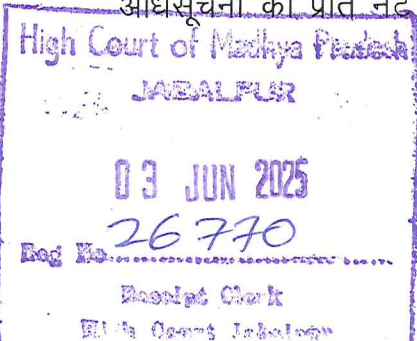 अधिसूचना की प्रति नेट
High Court of Madhya Pradesh
JABALPUR
03 JUN 2025
Reg No. 26770
Receipt Clerk
High Court Jabalpur